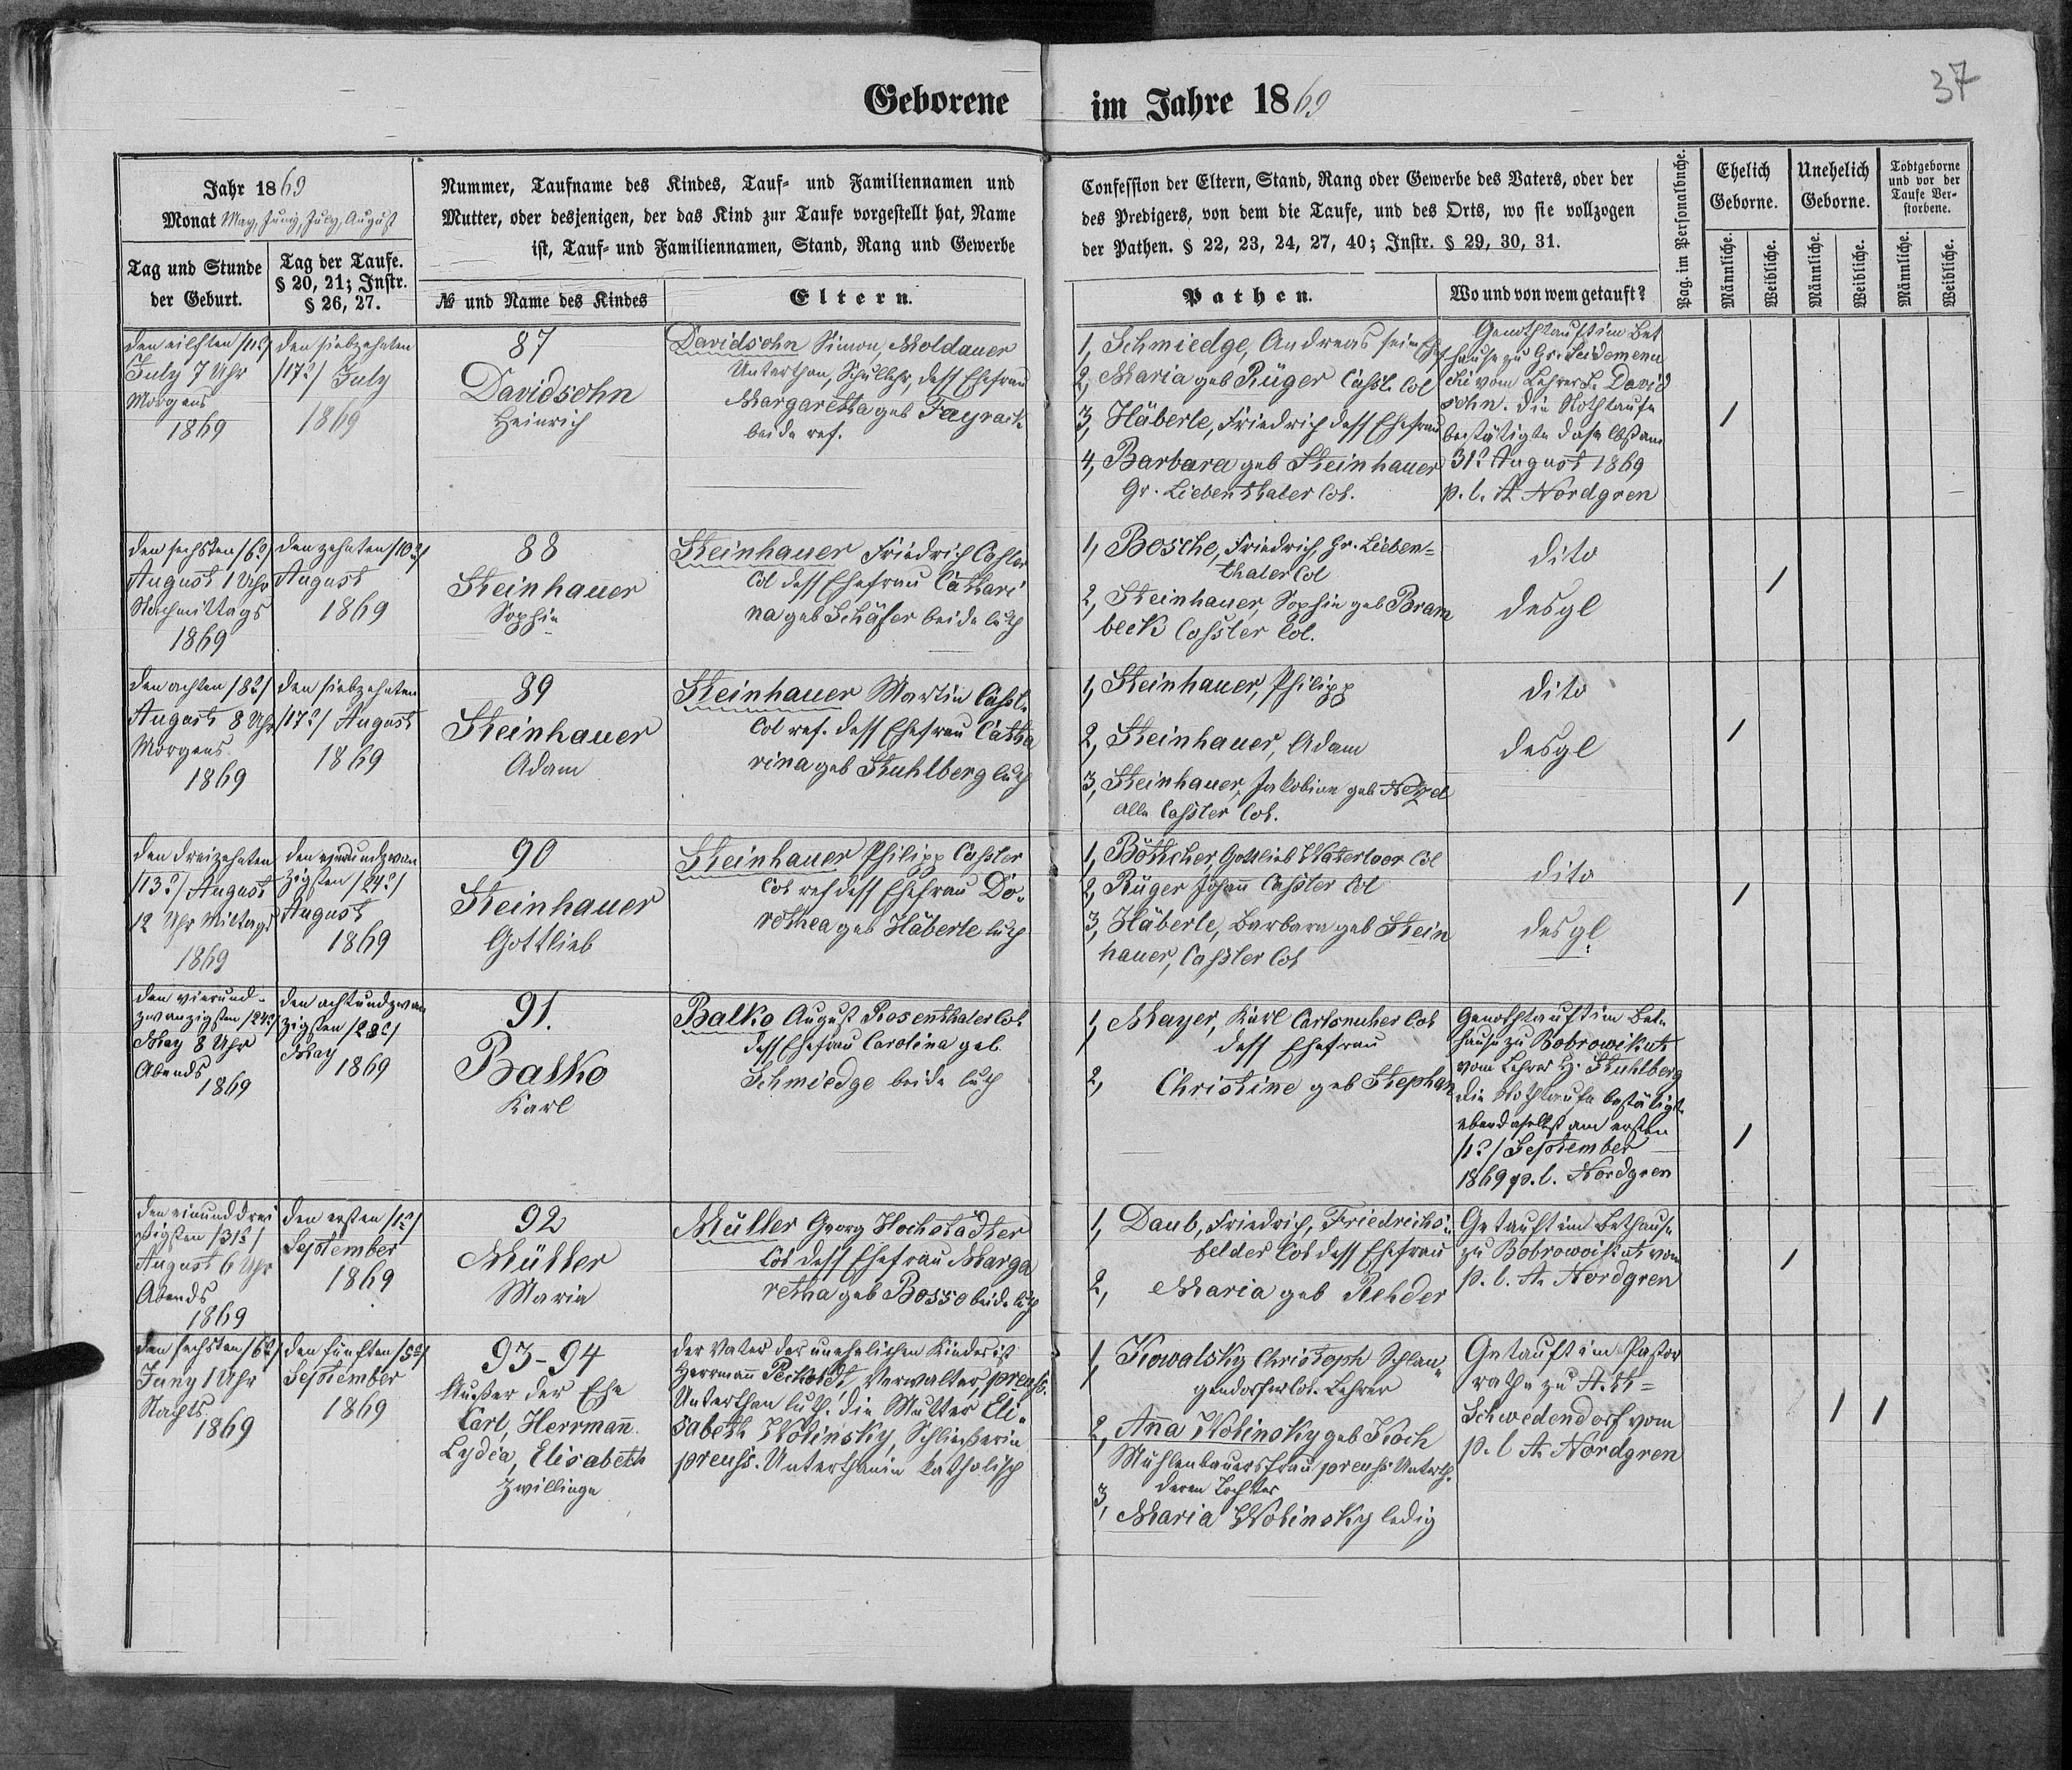 37
Geborene im Jahre 1869
Jahr 1869
Monat May, Juny, July, August
Tag und Stunde
der Geburt.
Tag der Taufe.
§ 20, 21; Instr.
§ 26, 27.
Nummer, Taufname des Kindes, Tauf- und Familiennamen und
Mutter, oder desjenigen, der das Kind zur Taufe vorgestellt hat, Name
ist, Tauf- und Familiennamen, Stand, Rang und Gewerbe
№ und Name des Kindes
Eltern.
Confession der Eltern, Stand, Rang oder Gewerbe des Vaters, oder der
des Predigers, von dem die Taufe, und des Orts, wo sie vollzogen
der Pathen. § 22, 23, 24, 27, 40; Instr. § 29, 30, 31.
Pathen.
Wo und von wem getauft?
Pag. im Personalbuche.
Ehelich
Geborne.
Unehelich
Geborne.
Todtgeborne
und vor der
Taufe Ver-
storbene.
Männliche.
Weibliche.
Männliche.
Weibliche.
Männliche.
Weibliche.
den eilften /11?/
July 7 Uhr
Morgens
1869
den siebzehnten
/17?/ July
1869
87
Davidsohn
Heinrich
Davidsohn Simon, Moldauer
Unterthan, Schullehr, dess Ehefrau
Margaretha geb
beide ref.
1, Schmiedge, Andreas sein
2, Maria geb Rüger Cassl. Col
3, Häberle, Friedrich dess Ehefrau
4, Barbara geb Steinhauer
Gr. Liebenthaler Col.
Genothtauft im Bet
hause zu Gr.
vom Lehrer S. David
sohn. die Nothtaufe
bestätigte daselbst am
31? August 1869
p. l. A. Nordgren
den sechsten /6?/
August 1 Uhr
Nachmittags
1869
den zehnten /10?/
August
1869
88
Steinhauer
Sophie
Steinhauer Friedrich Cassler
Col dess Ehefrau Cathari
na geb Schäfer beide luth
1, Bosche, Friedrich Gr. Lieben-
thaler Col
2, Steinhauer, Sophie geb Bram
beck Cassler Col.
dito
desgl
den achten /8?/
August 8 Uhr
Morgens
1869
den siebzehnten
/17?/ August
1869
89
Steinhauer
Adam
Steinhauer Martin Cassl.
Col ref. dess Ehefrau Catha
rina geb Stuhlberg luth
1, Steinhauer, Philipp
2, Steinhauer, Adam
3, Steinhauer, Jakobine geb
alle Cassler Col.
dito
desgl
den dreizehnten
/13?/ August
12 Uhr Mittags
1869
den vierundzwan
zigsten /24?/
August
1869
90
Steinhauer
Gottlieb
Steinhauer Philipp Cassler
Col ref dess Ehefrau Do-
rothea geb Häberle luth
1, Böttcher, Gottlieb Waterloor Col
2, Rüger Johann Cassler Col
3, Häberle, Barbara geb Stein
hauer, Cassler Col
dito
desgl.
den vierund-
zwanzigsten /24?/
May 8 Uhr
Abends
1869
den achtundzwan
zigsten /28?/
May
1869
91.
Balko
Karl
Balko August Rosenthaler Col
dess Ehefrau Carolina geb.
Schmiedge beide luth
1, Mayer, Karl Carlsruher Col
dess Ehefrau
2, Christine geb Stephan
Genothtauft im Bet-
hause zu Bobrowikut
vom Lehrer H. Stuhlberg
die Nothtaufe bestätigt
ebendaselbst am ersten
/1?/ September
1869 p. l. Nordgren
den einunddrei
ßigsten /31?/
August 6 Uhr
Abends
1869
den ersten /1?/
September
1869
92
Müller
Maria
Müller Georg Hochstädter
Col dess Ehefrau Marga
retha geb Bosso beide luth
1, Daub, Friedrich, Friedrichs-
felder Col dess Ehefrau
2, Maria geb Rehder
Getauft im Bethause
zu Bobrowoikut vom
p. l. A. Nordgren
den sechsten /6?/
Juny 1 Uhr
Nachts
1869
den fünften /5?/
September
1869
93-94
Außer der Ehe
Carl, Herrmann
Lydia, Elisabeth
Zwillinge
der Vater der unehelichen Kinder ist
Herrmann Peckoldt, Verwalter, preuss.
Unterthan luth. die Mutter Eli-
sabeth Wolinsky, Schließerin
preuss. Unterthanin katholisch
1, Kowalsky Christoph Schlan-
gendorfer Col. Lehrer
2, Anna Wolinsky geb Koch
Mühlenbauersfrau preuss Unterth.
deren Tochter
3, Maria Wolinsky ledig
Getauft im Pasto
rathe zu Alt=
Schwedendorf vom
p. l A. Nordgren